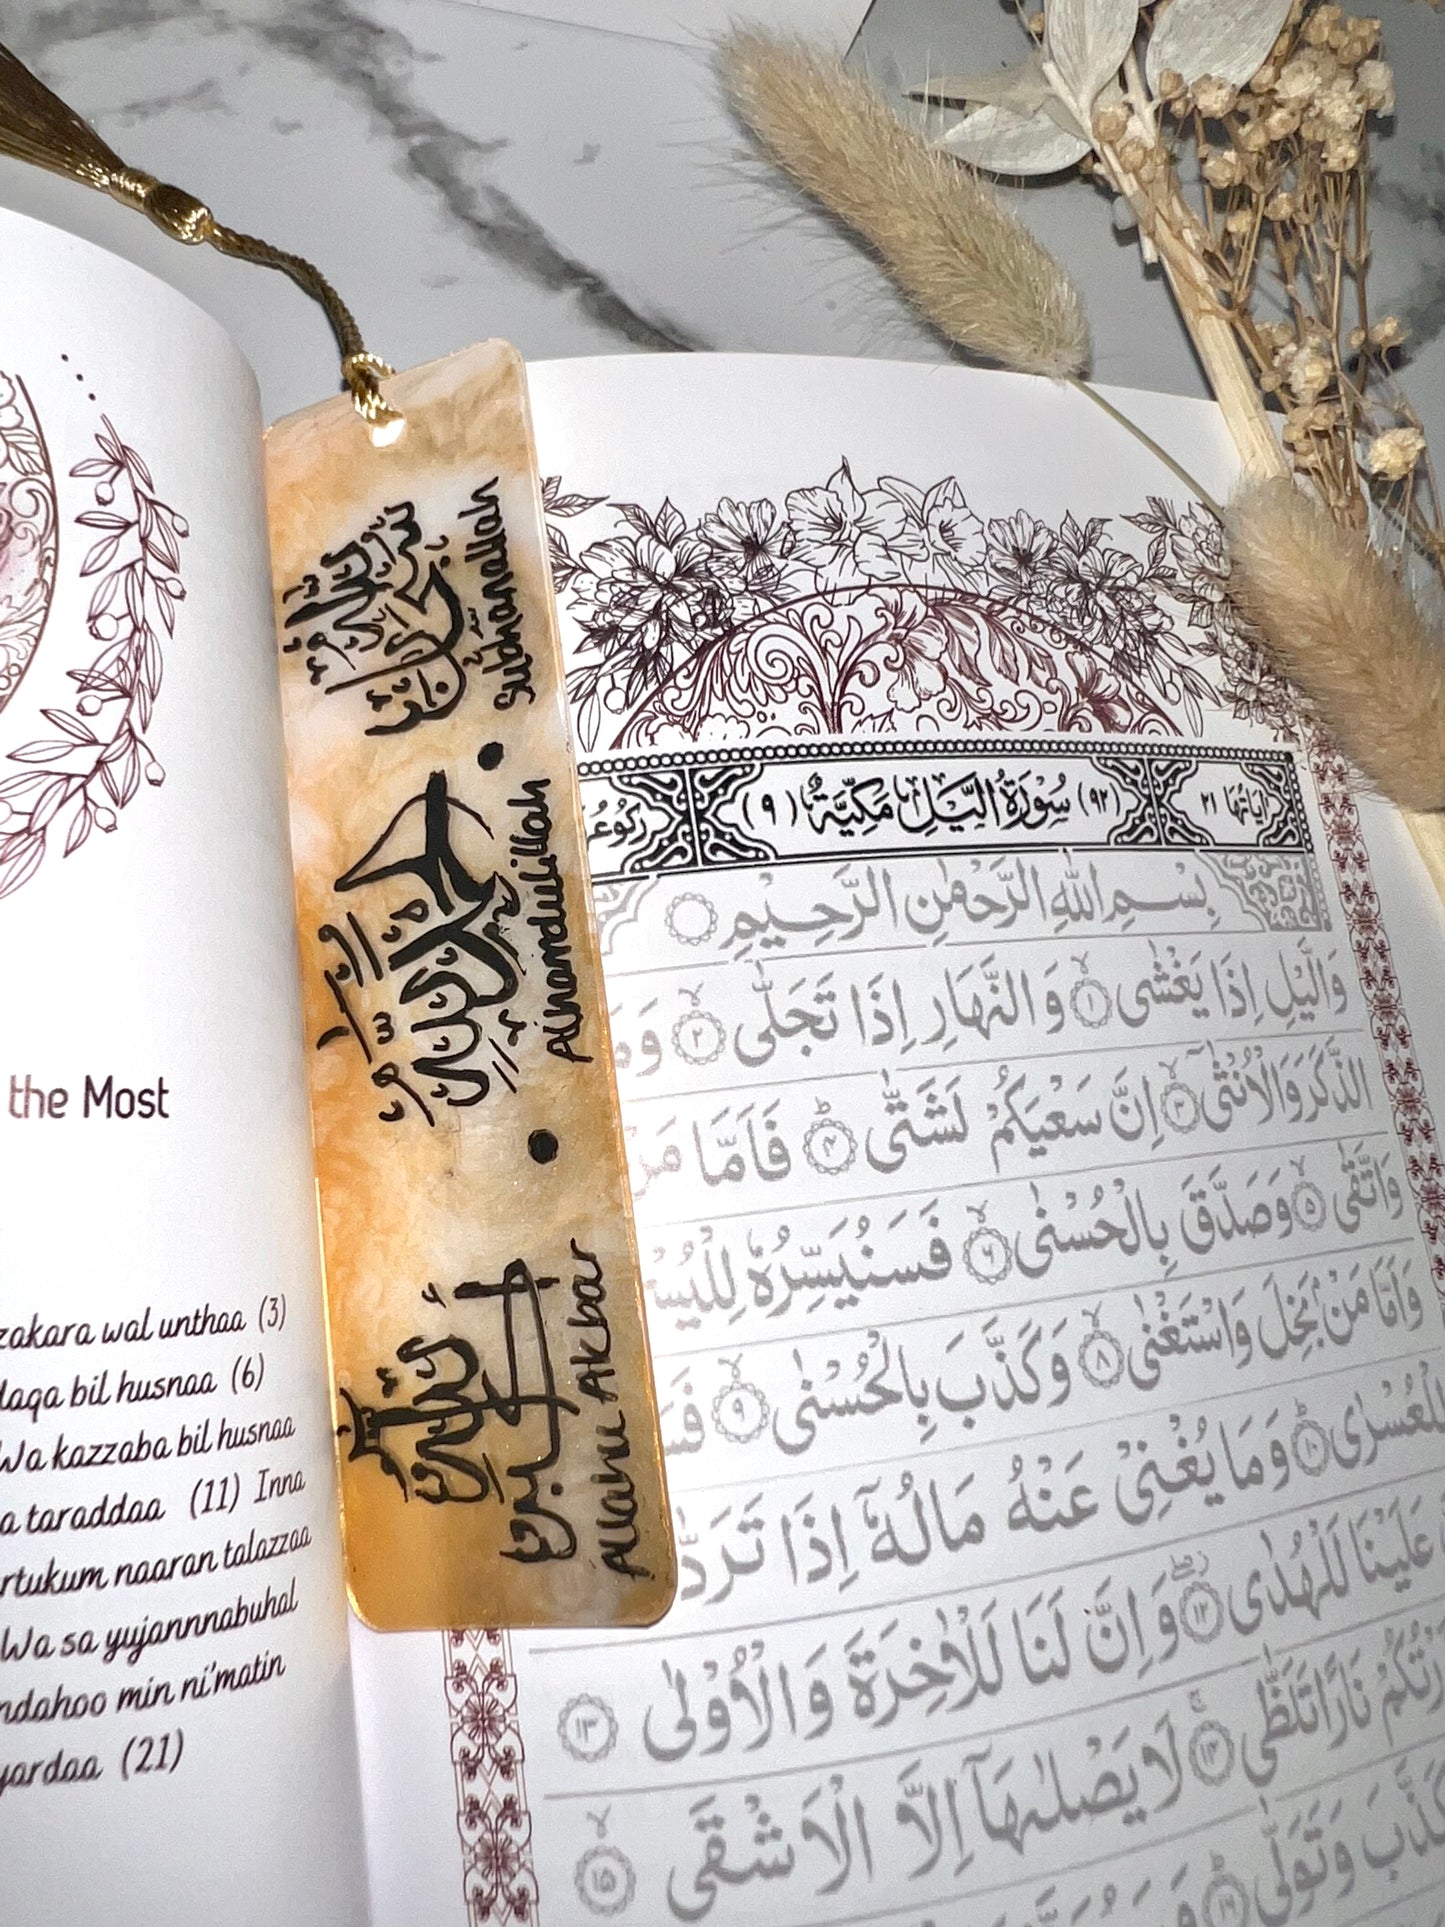 سبحان الله
Subhanallah
الحمد لله
Alhamdulillah
الله أكبر
Allahu Akbar
the Most
zakara wal unthaa (3)
daqa bil husnaa (6)
Wa kazzaba bil husnaa
a taraddaa (11) Inna
rtukum naaran talazzaa
Wa sa yujannnabuhal
ndahoo min ni'matin
yardaa (21)
اٰیَاتُهَا ٢١ (٩٢) سُوْرَةُ الَّيْلِ مَكِّيَّةٌ (٩)
بِسْمِ اللّٰهِ الرَّحْمٰنِ الرَّحِيْمِ
وَالَّيْلِ اِذَا يَغْشٰى ١ وَالنَّهَارِ اِذَا تَجَلّٰى ٢ وَمَ
الذَّكَرَ وَالْاُنْثٰٓى ٣ اِنَّ سَعْيَكُمْ لَشَتّٰى ٤ فَاَمَّا مَنْ
وَاتَّقٰى ٥ وَصَدَّقَ بِالْحُسْنٰى ٦ فَسَنُيَسِّرُهٗ لِلْيُسْ
وَاَمَّا مَنْۢ بَخِلَ وَاسْتَغْنٰى ٨ وَكَذَّبَ بِالْحُسْنٰى ٩ فَسَ
لِلْعُسْرٰى ١٠ وَمَا يُغْنِيْ عَنْهُ مَالُهٗٓ اِذَا تَرَدّٰ
عَلَيْنَا لَلْهُدٰى ١٢ وَاِنَّ لَنَا لَلْاٰخِرَةَ وَالْاُوْلٰى ١٣
رْتُكُمْ نَارًا تَلَظّٰى ١٤ لَا يَصْلٰىهَآ اِلَّا الْاَشْقَى ١٥
كَذَّبَ وَتَوَلّٰى ١٦